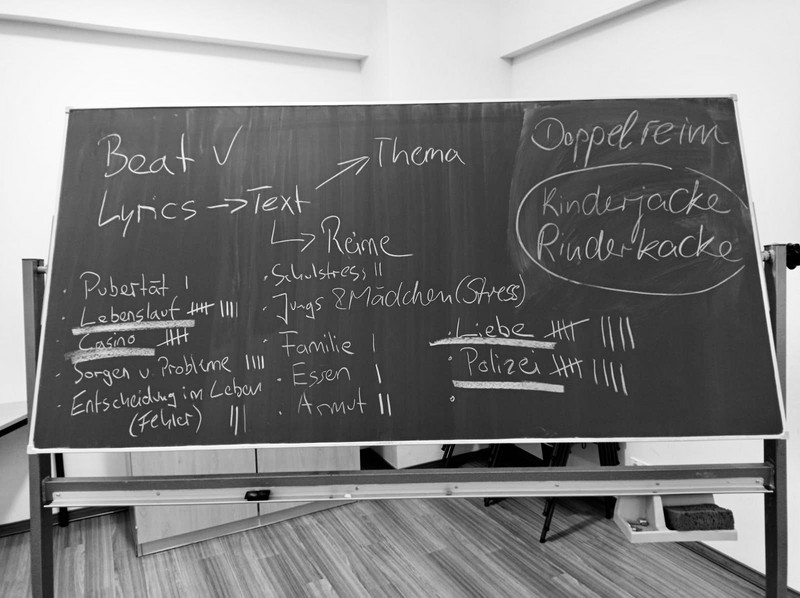 Beat V
Thema
Lyrics → Text
Reime
① Doppelreim
Kinderjacke
Rinderkacke
· Pubertät |
· Lebenslauf |||| ||||
· Casino ||||
· Sorgen u. Probleme ||||
· Entscheidung im Leben
(Fehler) |||
· Schulstress ||
· Jungs & Mädchen (Stress)
· Familie |
· Essen |
· Armut ||
· Liebe |||| ||||
· Polizei |||| ||||